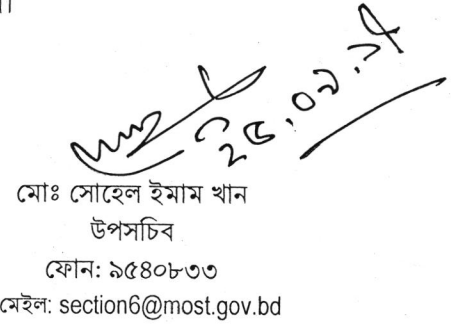 মোঃ সোহেল ইমাম খান
উপসচিব
ফোন: ৯৫৪০৮৩৩
মেইল: section6@most.gov.bd